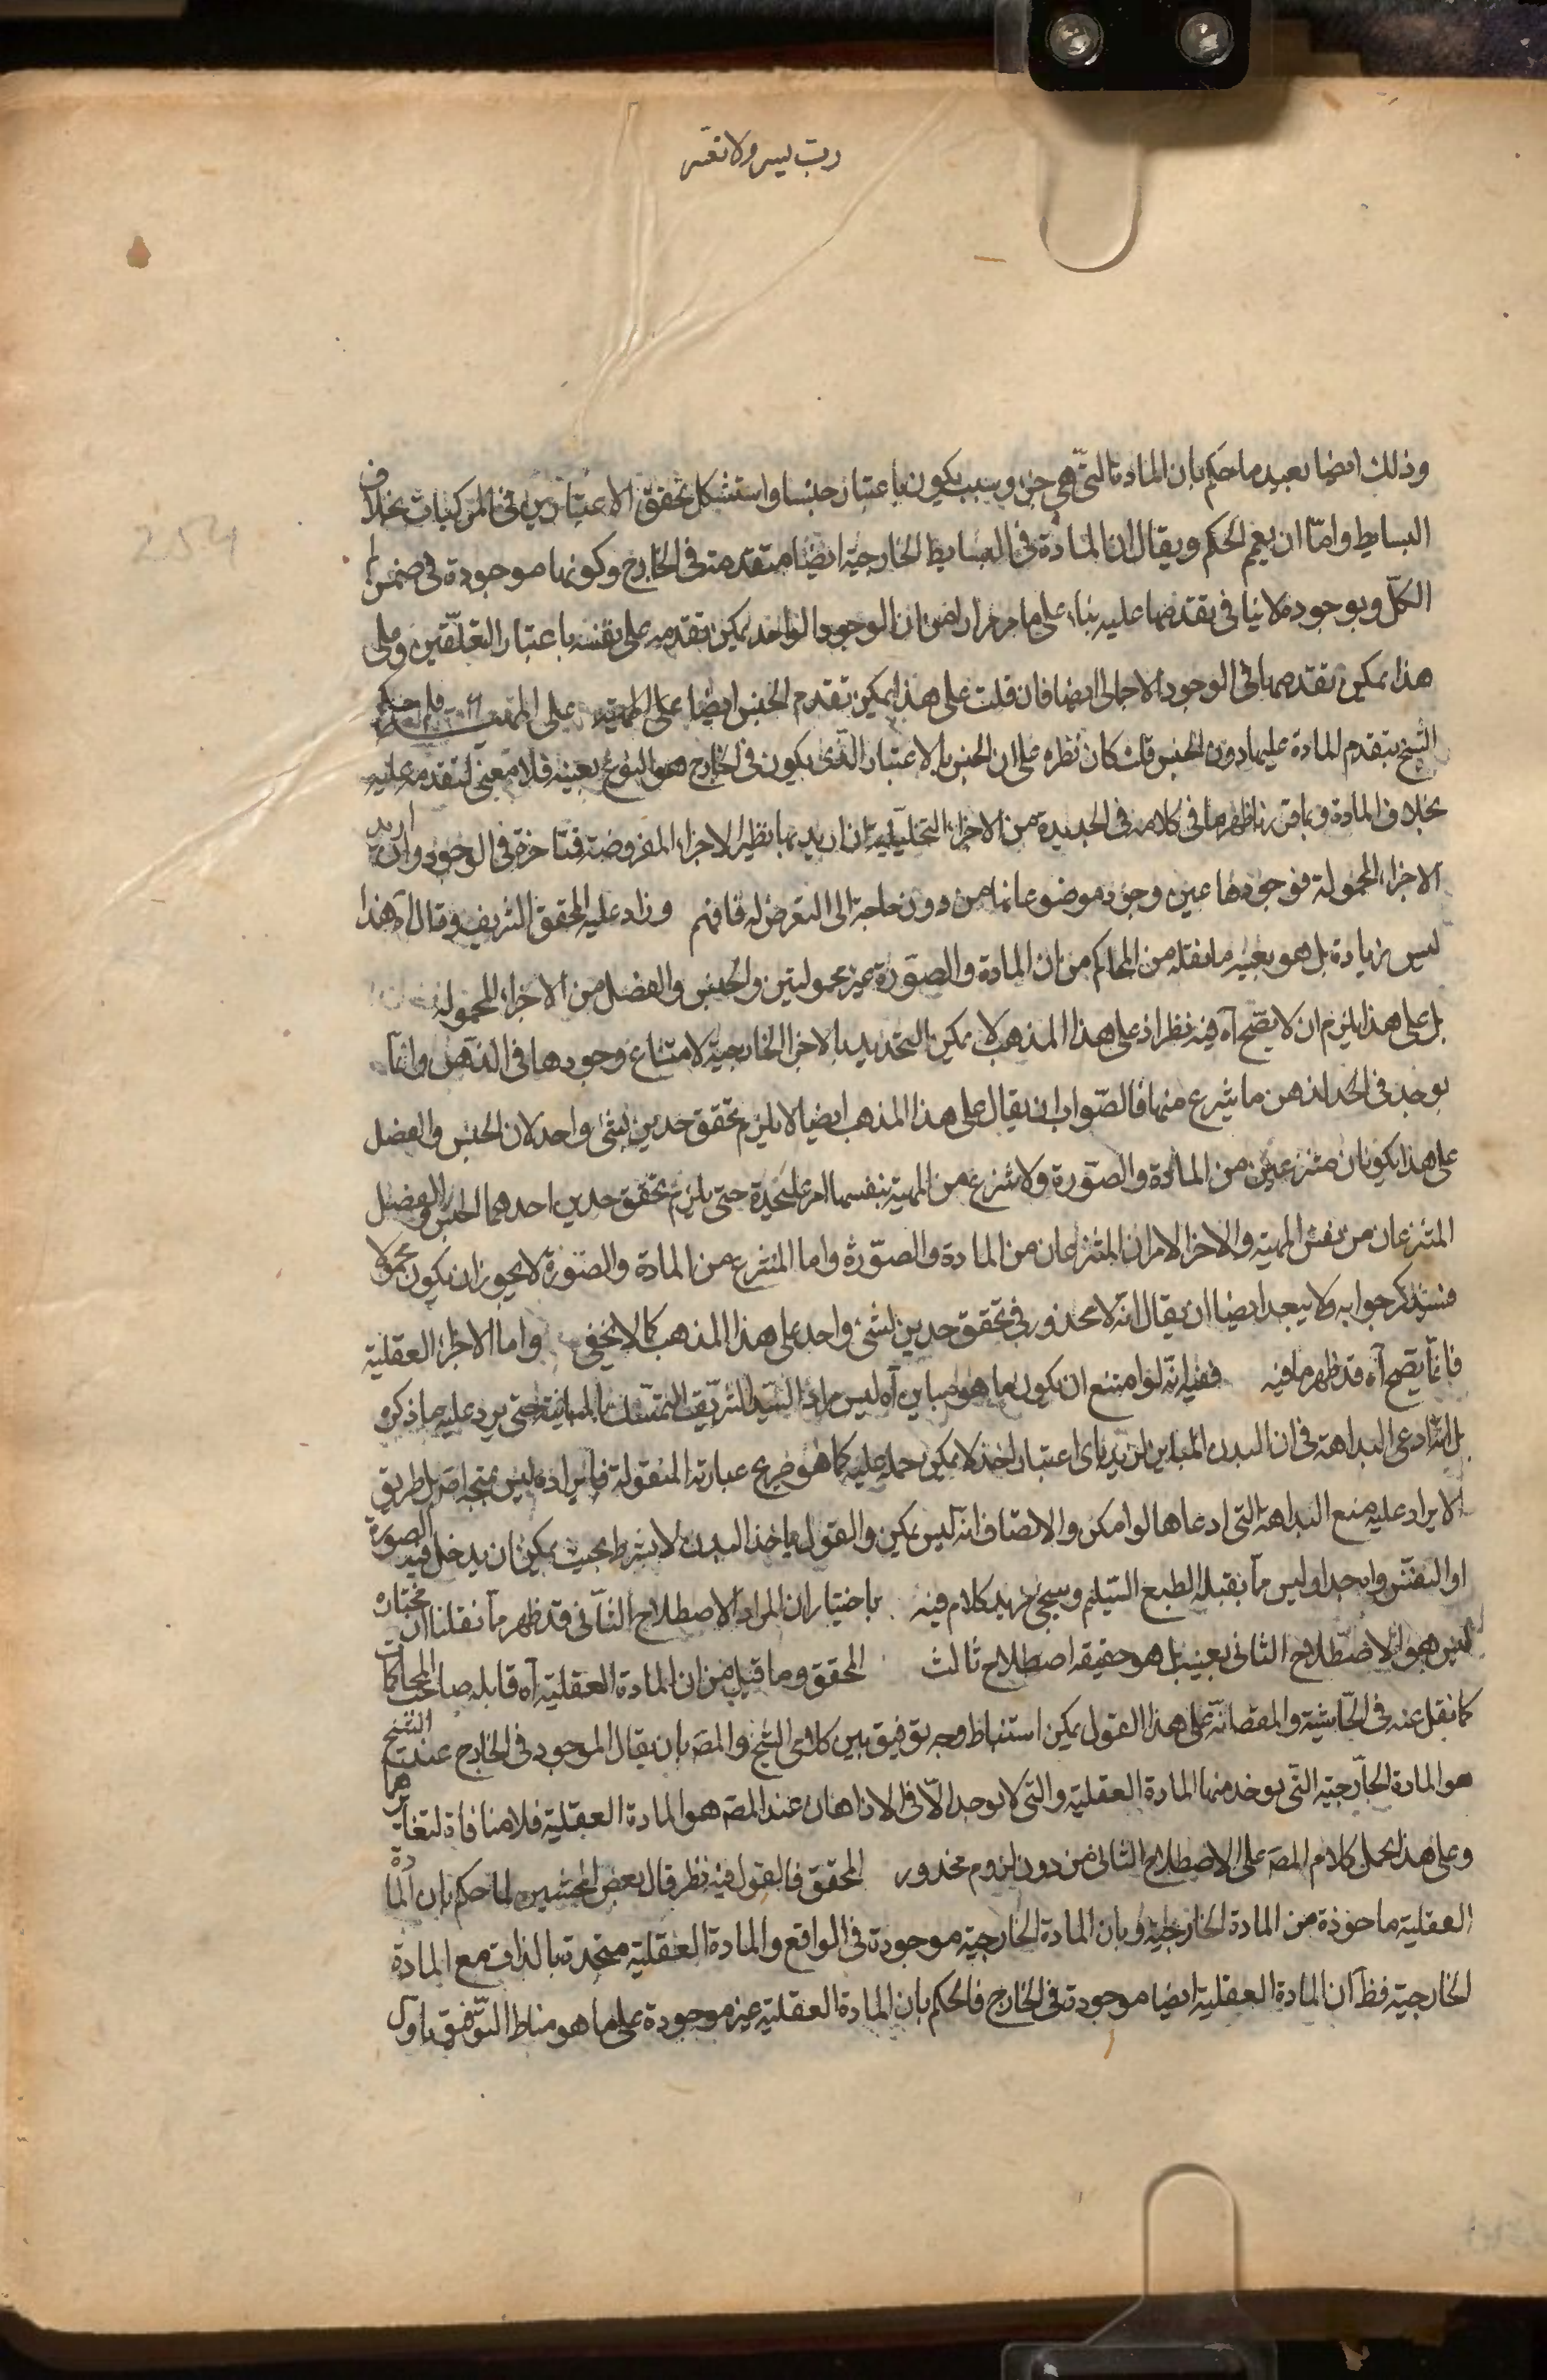 رب يسر ولا تعسر
وذلك ايضا بعيد ما حكم بان المادة التى هى جزء وسبب يكون باعتبار جنسا واستشكل تحقق الاعتبارين فى المركبات بخلاف
البسايط واما ان يعم الحكم ويقال ان المادة فى البسايط الخارجية ايضا متقدمة فى الخارج وكونها موجودة فى ضمن
الكل وبوجوده لا ينافى تقدمها عليه بناء على ما مر مرارا من ان الوجود الواحد يمكن تقدمه على نفسه باعتبار التعلقين وعلى
هذا يمكن تقدمها فى الوجود الاجمالى ايضا فان قلت على هذا يمكن تقدم الجنس ايضا على المهية على المهية فلم حكم
الشيخ بتقدم المادة عليها دون الجنس قلت كان نظره على ان الجنس بالاعتبار الذى يكون فى الخارج هو النوع بعينه فلا معنى لتقدمه عليه
بخلاف المادة وبما قررنا ظهر ما فى كلامه فى الجديدة من الاجزاء التحليلية ان اريد بها نظير الاجزاء المفروضة فمتاخرة فى الوجود وان اريد
الاجزاء المحمولة فوجودها عين وجود موضوعاتها من دون حاجة الى التعرض له فافهم وزاد عليه المحقق الشريف وقال آه هذا
ليس زيادة بل هو بعينه ما نقله من المحاكم من ان المادة والصورة غير محمولتين والجنس والفصل من الاجزاء المحمولة
بل على هذا يلزم ان لا يصح آه فيه نظر اذ على هذا المذهب لا يمكن التحديد بالاجزاء الخارجية لامتناع وجودها فى الذهن وانما
يوجد فى الحد الذهن ما ينتزع منها فالصواب ان يقال على هذا المذهب ايضا لا يلزم تحقق حدين لشئ واحد لان الجنس والفصل
على هذا يكونان منتزعين من المادة والصورة ولا ينتزع من المهية بنفسها امر على حدة حتى يلزم تحقق حدين احدهما الجنس والفصل
المنتزعان من نفس المهية والاخر الامران المنتزعان من المادة والصورة واما المنتزع من المادة والصورة لا يجوز ان يكون محمولا
فسنذكر جوابه ولا يبعد ايضا ان يقال انه لا محذور فى تحقق حدين لشئ واحد على هذا المذهب كما لا يخفى واما الاجزاء العقلية
فانما يصح آه قد ظهر ما فيه ففيه انه لو امتنع ان يكون ما هو مباين آه ليس مراد السيد الشريف التمسك بالمباينة حتى يرد عليه ما ذكره
بل انه ادعى البداهة فى ان البدن المباين لزيد باى اعتبار اخذ لا يمكن حمله عليه كما هو صريح عبارته المنقولة فايراده ليس بمتجه اصلا بل طريق
الايراد عليه منع البداهة التى ادعاها لو امكن والانصاف انه ليس يمكن والقول باخذ البدن لا بشرط بحيث يمكن ان يدخل فيه الصورة
او النفس واحدا وليس مما يقبله الطبع السليم وسيجئ مزيد كلام فيه باختيار ان المراد الاصطلاح الثانى قد ظهر مما نقلنا ان مختاره
ليس هو الاصطلاح الثانى بعينه بل هو حقيقة اصطلاح ثالث المحقق وما قيل من ان المادة العقلية آه قابله صاحب المحاكمات
كما نقل عنه فى الحاشية والمقصانه على هذا القول يمكن استنباط وجه توفيق بين كلامى الشيخ والمصـ بان يقال الموجود فى الخارج عند الشيخ
هو المادة الخارجية التى يوخذ منها المادة العقلية والتى لا يوجد الا فى الاذهان عند المصـ هو المادة العقلية فلا منافاة لتغايرهما
وعلى هذا يحمل كلام المصـ على الاصطلاح الثانى من دون لزوم محذور المحقق فالقول فيه نظر قال بعض المحشين لما حكم بان المادة
العقلية ماخوذة من المادة الخارجية وبان المادة الخارجية موجودة فى الواقع والمادة العقلية متحدة بالذات مع المادة
الخارجية فظ ان المادة العقلية ايضا موجودة فى الخارج فالحكم بان المادة العقلية غير موجودة على ما هو مناط التوفيق باول
254